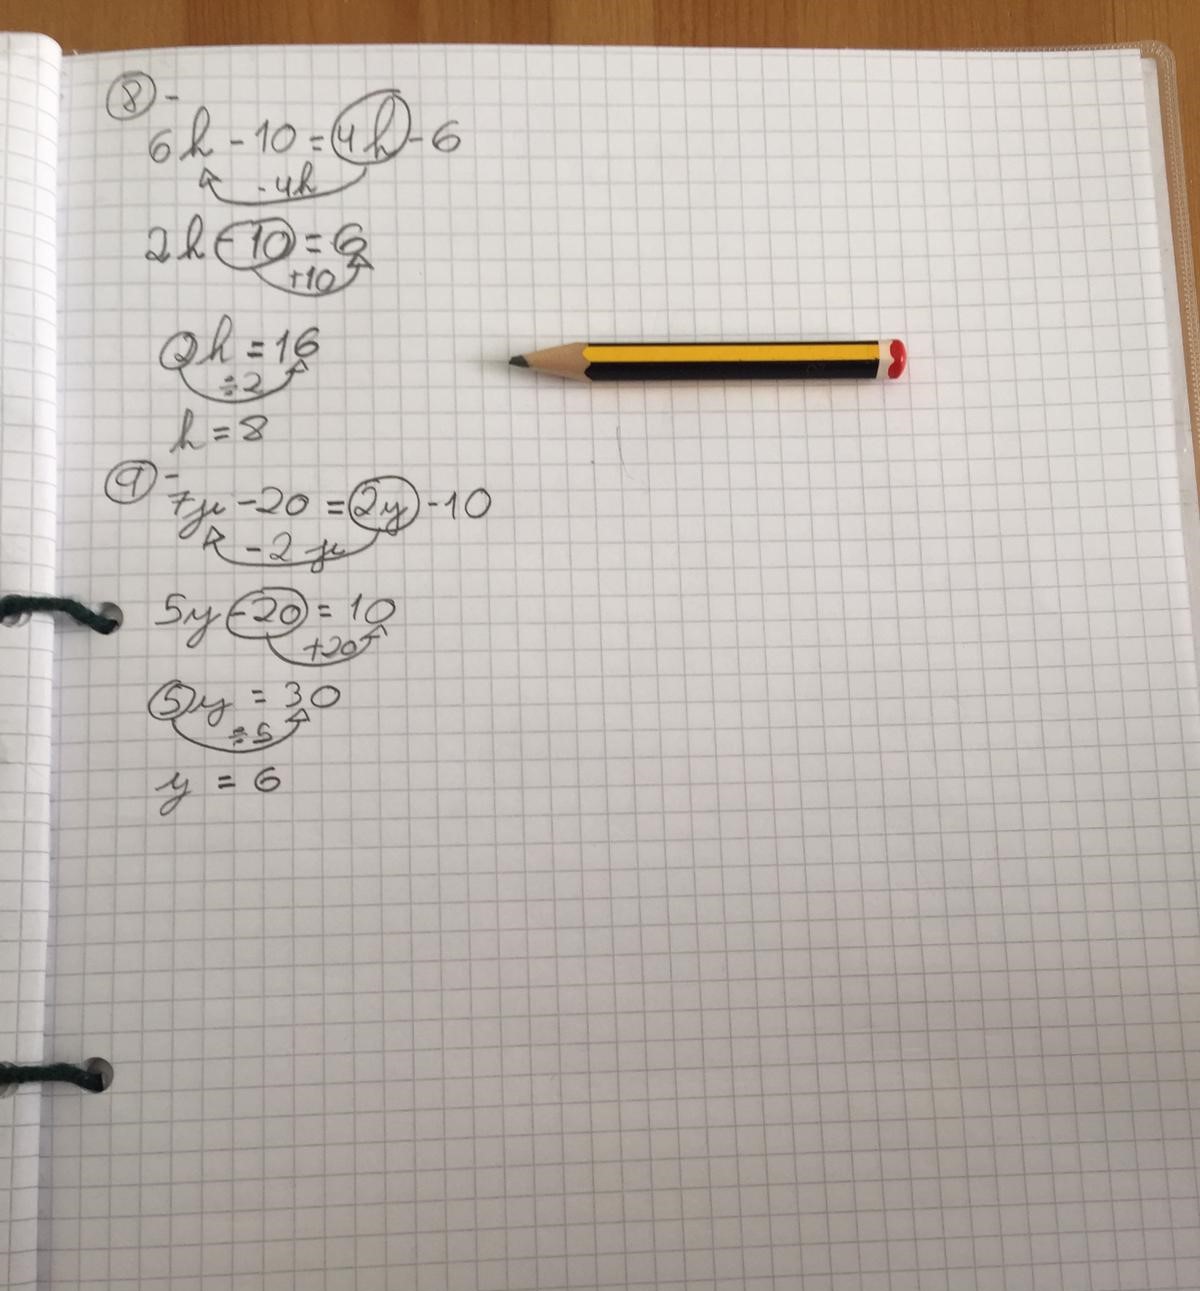 8 -
6h - 10 = 4h - 6
- 4h
2h - 10 = 6
+10
2h = 16
÷2
h = 8
9 -
7y - 20 = 2y - 10
- 2y
5y - 20 = 10
+20
5y = 30
÷5
y = 6